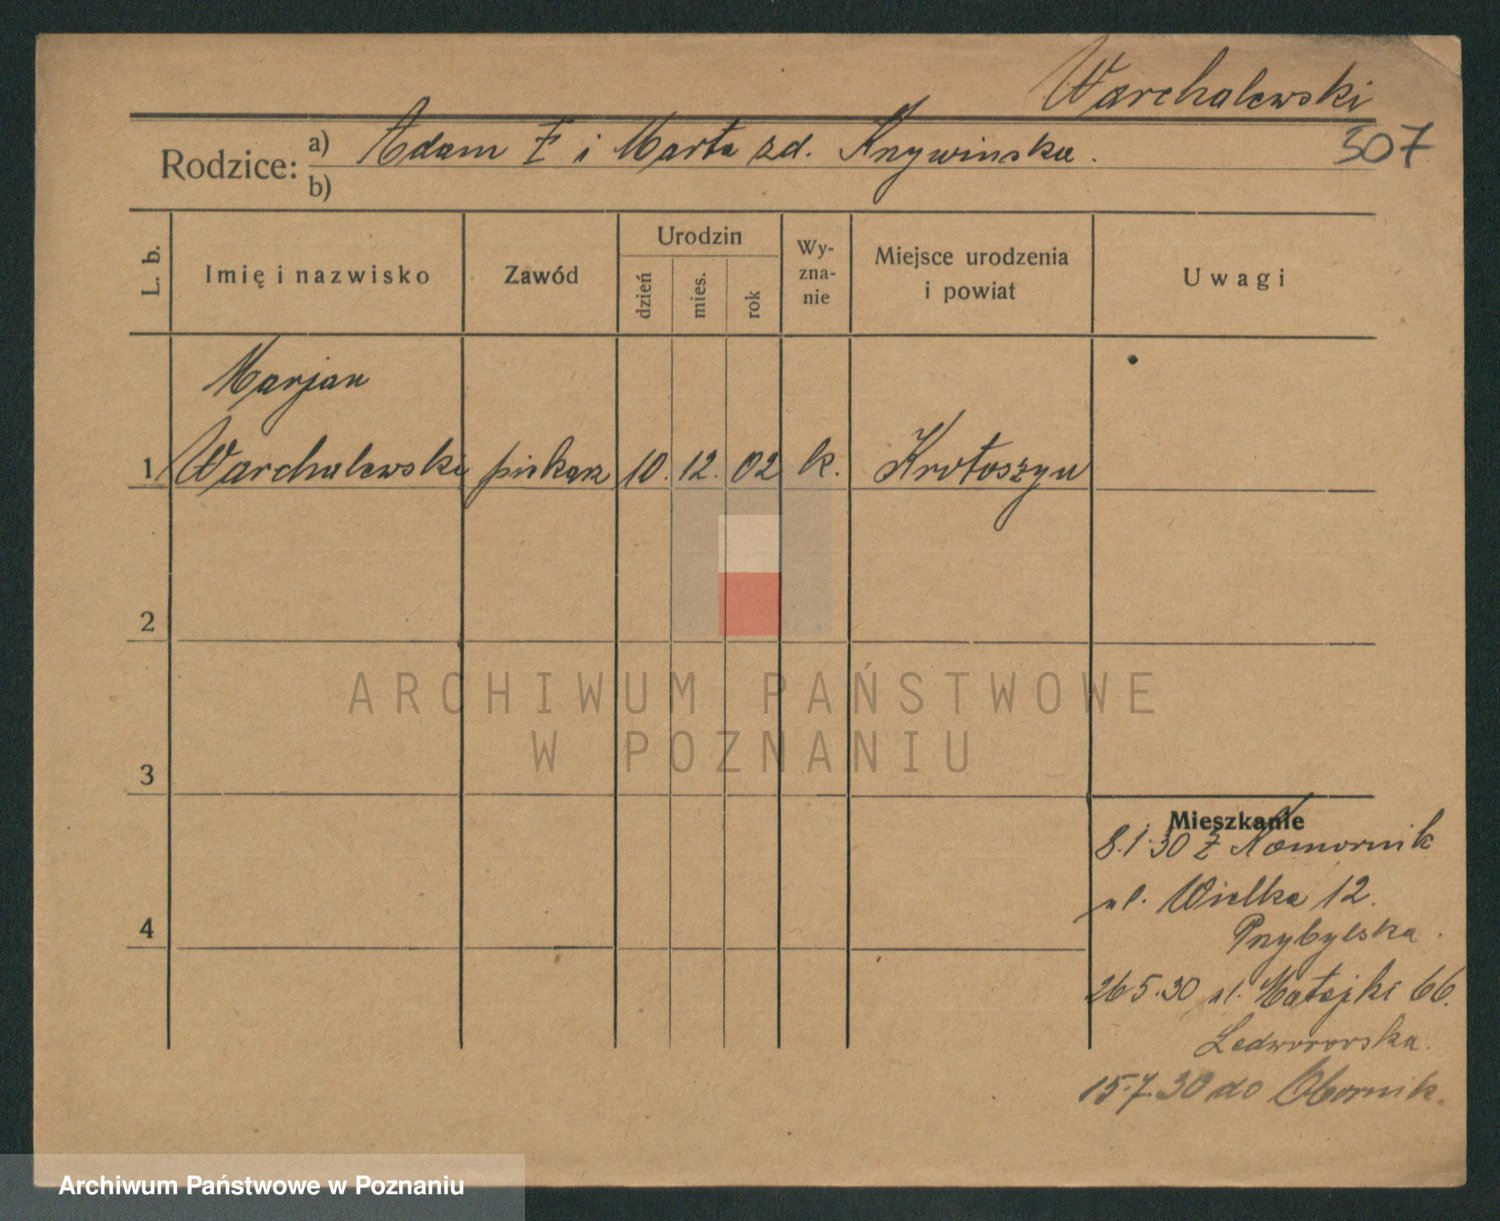 Warchalewski
307
Rodzice: a) Adam E i Marta zd. Krzywińska.
b)
L. b.
Imię i nazwisko
Zawód
Urodzin
dzień
mies.
rok
Wy-
zna-
nie
Miejsce urodzenia
i powiat
Uwagi
Marjan
1 Warchalewski piekarz 10. 12. 02 k. Krotoszyn
2
ARCHIWUM PAŃSTWOWE
W POZNANIU
3
Mieszkanie
8.1.30 z Komornik
ul. Wielka 12.
Przybylska.
4
26 5.30 ul. Matejki 66.
15.7.30 do Obornik.
Archiwum Państwowe w Poznaniu